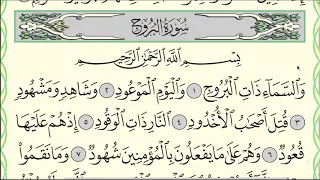 سُورَةُ الْبُرُوجِ
بِسْمِ اللَّهِ الرَّحْمَٰنِ الرَّحِيمِ
وَالسَّمَاءِ ذَاتِ الْبُرُوجِ ١ وَالْيَوْمِ الْمَوْعُودِ ٢ وَشَاهِدٍ وَمَشْهُودٍ
٣ قُتِلَ أَصْحَابُ الْأُخْدُودِ ٤ النَّارِ ذَاتِ الْوَقُودِ ٥ إِذْ هُمْ عَلَيْهَا
قُعُودٌ ٦ وَهُمْ عَلَىٰ مَا يَفْعَلُونَ بِالْمُؤْمِنِينَ شُهُودٌ ٧ وَمَا نَقَمُوا